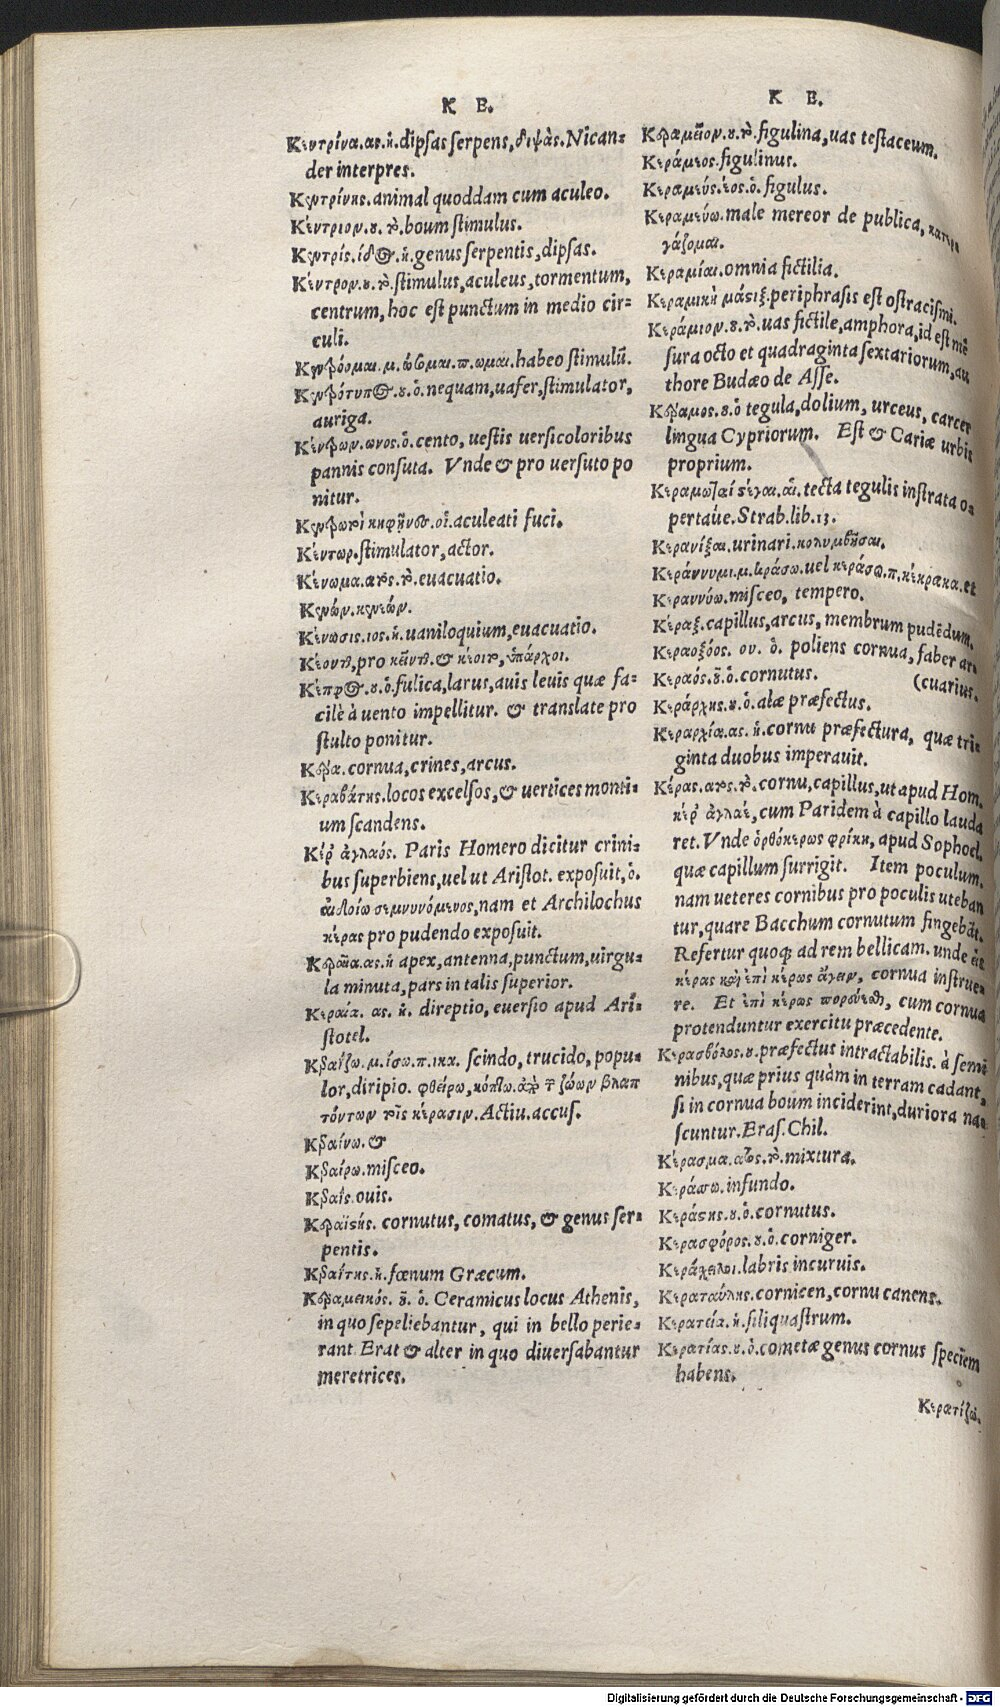 Κ Ε.
Κεντρίνα.ας.ἡ.dipsas serpens,διψὰς.Nican-
der interpres.
Κεντρίνης.animal quoddam cum aculeo.
Κέντριον.ου.τὸ.boum stimulus.
Κεντρίς.ίδος.ἡ.genus serpentis,dipsas.
Κέντρον.ου.τὸ.stimulus,aculeus,tormentum,
centrum,hoc est punctum in medio cir-
culi.
Κεντρόομαι.μ.ώσωμαι.π.ωμαι.habeo stimulū.
Κεντρότυπος.ου.ὁ.nequam,uafer,stimulator,
auriga.
Κέντρων.ωνος.ὁ.cento, uestis uersicoloribus
pannis consuta. Vnde & pro uersuto po
nitur.
Κεντρωτοὶ κηφῆνες.οἱ.aculeati fuci.
Κέντωρ.stimulator, actor.
Κένωμα.ατος.τὸ.euacuatio.
Κενών.κενεών.
Κένωσις.ιος.ἡ.uaniloquium,euacuatio.
Κέοντο,pro κεῖντο.& κέοιτο,ὑπάρχοι.
Κέπφος.ου.ὁ.fulica,larus,auis leuis quæ fa-
cilè à uento impellitur. & translate pro
stulto ponitur.
Κέρα.cornua,crines,arcus.
Κεραβάτης.locos excelsos,& uertices monti-
um scandens.
Κέρᾳ ἀγλαός. Paris Homero dicitur crini-
bus superbiens,uel ut Aristot. exposuit,ὁ.
αἰδοίῳ σεμνυνόμενος,nam et Archilochus
κέρας pro pudendo exposuit.
Κεραία.ας.ἡ apex, antenna,punctum,uirgu-
la minuta, pars in talis superior.
Κεραία. ας. ἡ. direptio, euersio apud Ari-
stotel.
Κεραΐζω.μ.ίσω.π.ικα. scindo, trucido, popu-
lor,diripio. φθείρω,κόπτω.ἀπὸ τῶν ζώων βλαπ
τόντων τοῖς κέρασιν.Actiu.accus.
Κεραίνω.&
Κεραίρω.misceo.
Κεραΐς.ouis.
Κεραϊστής. cornutus, comatus, & genus ser-
pentis.
Κεραΐτης.ἡ.fœnum Græcum.
Κεραμεικός. οῦ. ὁ. Ceramicus locus Athenis,
in quo sepeliebantur, qui in bello perie-
rant. Erat & alter in quo diuersabantur
meretrices.
Κ Ε.
Κεραμεῖον.ου.τὸ.figulina,uas testaceum.
Κεράμεος.figulinus.
Κεραμεύς.έος.ὁ.figulus.
Κεραμεύω.male mereor de publica, κατερ
γάζομαι.
Κεραμίαι.omnia fictilia.
Κεραμικὴ μάστιξ.periphrasis est ostracismi.
Κεράμιον.ου.τὸ.uas fictile,amphora,id est mē
sura octo et quadraginta sextariorum,au
thore Budæo de Asse.
Κέραμος.ου.ὁ tegula,dolium, urceus, carcer
lingua Cypriorum. Est & Cariæ urbis
proprium.
Κεραμωταί στέγαι.αἱ.tecta tegulis instrata o-
pertáue.Strab.lib.13.
Κερανίξαι.urinari.κολυμβῆσαι.
Κεράννυμι.μ.κεράσω.uel κεράσω.π.κέκρακα.et
Κεραννύω.misceo, tempero.
Κέραξ.capillus,arcus,membrum pudēdum.
Κεραοξόος. ου. ὁ. poliens cornua,faber ar-
(cuarius.
Κεραός.οῦ.ὁ.cornutus.
Κεράρχης.ου.ὁ.alæ præfectus.
Κεραρχία.ας.ἡ.cornu præfectura, quæ tri-
ginta duobus imperauit.
Κέρας.ατος.τὸ.cornu,capillus,ut apud Hom.
κέρᾳ ἀγλαέ,cum Paridem à capillo lauda
ret. Vnde ὀρθόκερως φρίκη, apud Sophocl.
quæ capillum surrigit. Item poculum.
nam ueteres cornibus pro poculis uteban
tur,quare Bacchum cornutum fingebāt.
Refertur quoq; ad rem bellicam. unde εἰς
κέρας καὶ ἐπὶ κέρως ἄγειν, cornua instrue-
re. Et ἐπὶ κέρως πορεύεσθαι, cum cornua
protenduntur exercitu præcedente.
Κερασβόλος.ου.præfectus intractabilis. à semi
nibus,quæ prius quàm in terram cadant,
si in cornua boum inciderint,duriora na-
scuntur.Eras.Chil.
Κέρασμα.ατος.τὸ.mixtura.
Κεράσσω.infundo.
Κεράστης.ου.ὁ.cornutus.
Κερασφόρος.ου.ὁ.corniger.
Κεράχειλοι.labris incuruis.
Κεραταύλης.cornicen,cornu canens.
Κερατεία.ἡ.siliquastrum.
Κερατίας.ου.ὁ.cometæ genus cornus speciem
habens.
Κερατίζω.
Digitalisierung gefördert durch die Deutsche Forschungsgemeinschaft - DFG